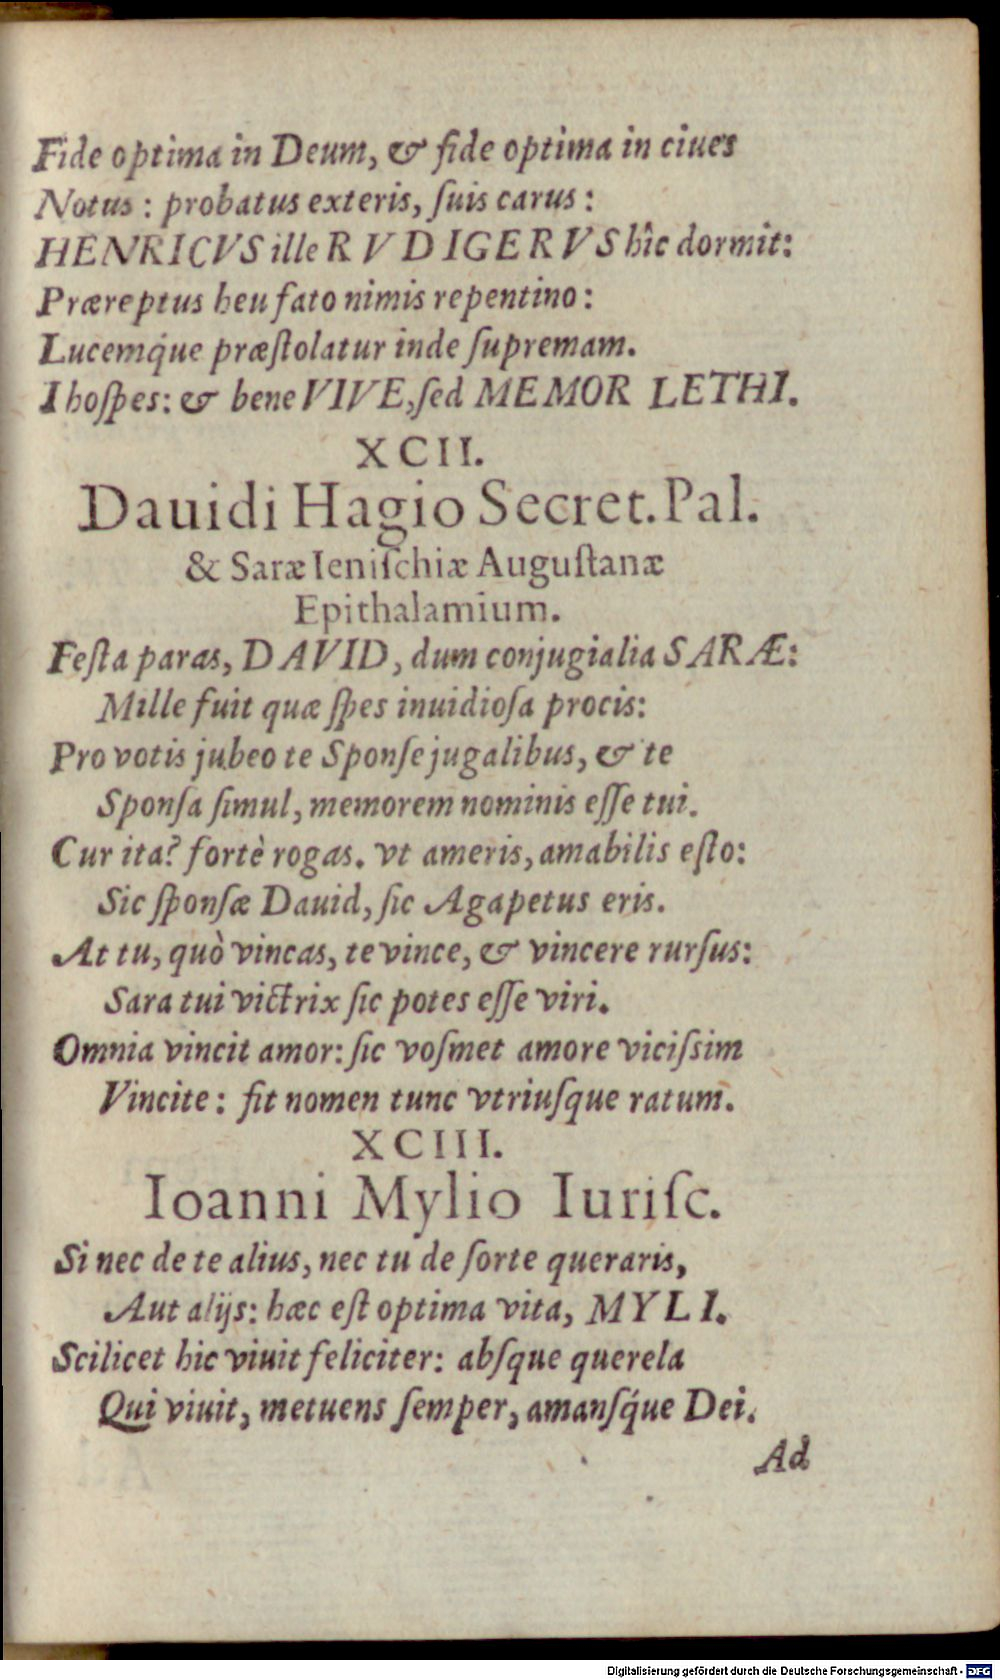 Fide optima in Deum, & fide optima in ciues
Notus : probatus exteris, ſuis carus :
HENRICVS ille RVDIGERVS hîc dormit:
Præreptus heu fato nimis repentino :
Lucemq́ue præſtolatur inde ſupremam.
I hoſpes: & bene VIVE, ſed MEMOR LETHI.
XCII.
Dauidi Hagio Secret. Pal.
& Saræ Ieniſchiæ Auguſtanæ
Epithalamium.
Feſta paras, DAVID, dum conjugialia SARÆ:
Mille fuit quæ ſpes inuidioſa procis:
Pro votis jubeo te Sponſe jugalibus, & te
Sponſa ſimul, memorem nominis eſſe tui.
Cur ita? fortè rogas. vt ameris, amabilis eſto:
Sic ſponſæ Dauid, ſic Agapetus eris.
At tu, quò vincas, te vince, & vincere rurſus:
Sara tui victrix ſic potes eſſe viri.
Omnia vincit amor: ſic voſmet amore viciſsim
Vincite : ſit nomen tunc vtriuſque ratum.
XCIII.
Ioanni Mylio Iuriſc.
Si nec de te alius, nec tu de ſorte queraris,
Aut alijs: hæc eſt optima vita, MYLI.
Scilicet hic viuit feliciter: abſque querela
Qui viuit, metuens ſemper, amanſq́ue Dei.
Ad
Digitalisierung gefördert durch die Deutsche Forschungsgemeinschaft - DFG